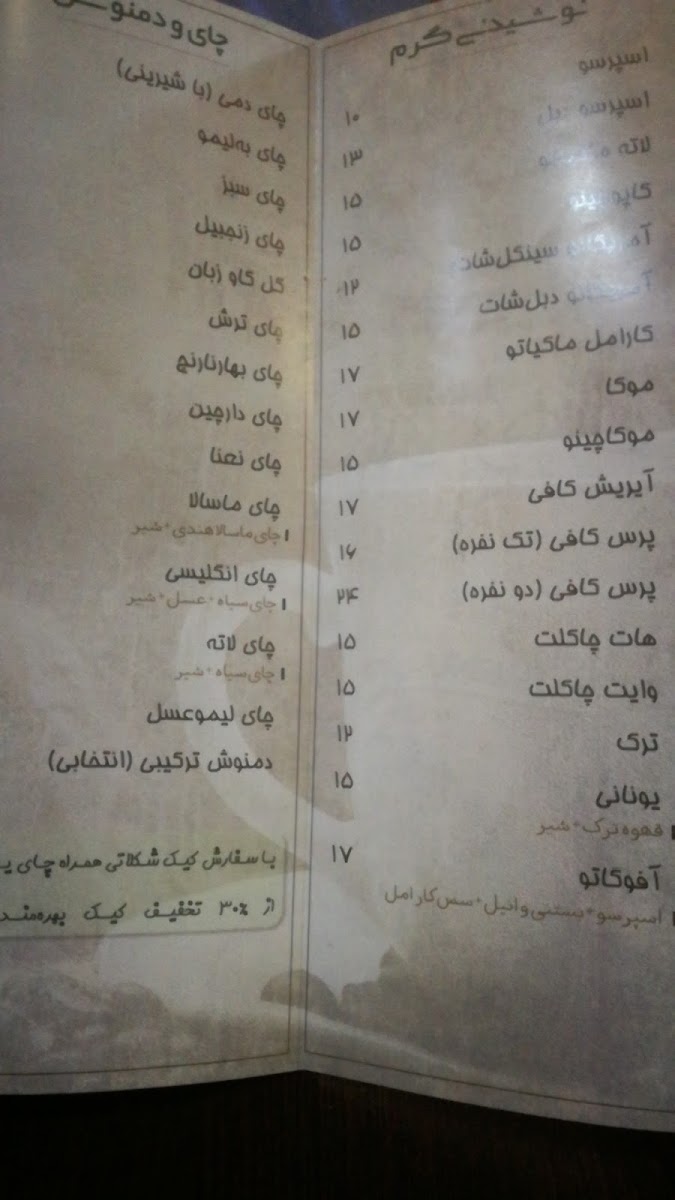 نوشیدنی گرم
اسپرسو ۱۰
اسپرسو دبل ۱۳
لاته ۱۵
کاپوچینو ۱۵
آمریکانو سینگل‌شات ۱۲
آمریکانو دبل‌شات ۱۵
کارامل ماکیاتو ۱۷
موکا ۱۷
موکاچینو ۱۵
آیریش کافی ۱۷
پرس کافی (تک نفره) ۱۶
پرس کافی (دو نفره) ۲۴
هات چاکلت ۱۵
وایت چاکلت ۱۵
ترک ۱۲
یونانی ۱۵
قهوه ترک+شیر
آفوگاتو ۱۷
اسپرسو+بستنی وانیل+سس کارامل
چای و دمنوش
چای دمی (با شیرینی)
چای به‌لیمو
چای سبز
چای زنجبیل
گل گاو زبان
چای ترش
چای بهارنارنج
چای دارچین
چای نعنا
چای ماسالا
چای ماسالا هندی+شیر
چای انگلیسی
چای سیاه+عسل+شیر
چای لاته
چای سیاه+شیر
چای لیموعسل
دمنوش ترکیبی (انتخابی)
با سفارش کیک شکلاتی همراه چای
از ۳۰% تخفیف کیک بهره‌مند